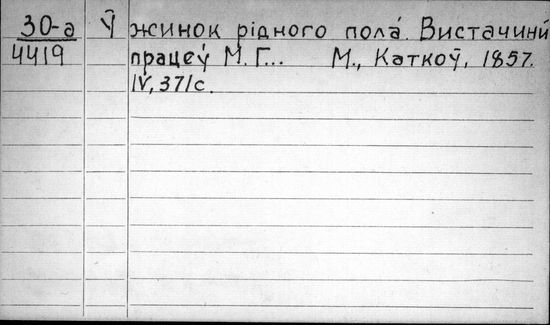 30-а Ў жинок рідного пола́. Вистачини́
4419 працеў М. Г... М., Каткоў, 1857.
IV, 371 с.